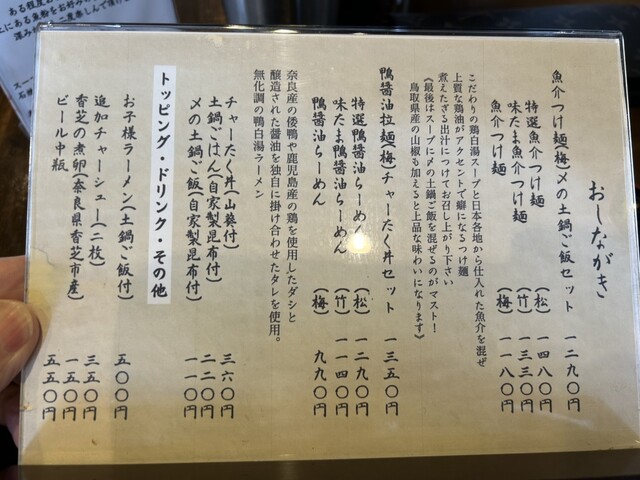 おしながき
魚介つけ麺(梅)〆の土鍋ご飯セット 一二九〇円
特選魚介つけ麺 (松) 一四八〇円
味たま魚介つけ麺 (竹) 一三三〇円
魚介つけ麺 (梅) 一一八〇円
こだわりの鶏白湯スープと日本各地から仕入れた魚介を混ぜ
上質な鶏油がアクセントで癖になるつけ麺
煮えたぎる出汁につけてお召し上がり下さい
《最後はスープに〆の土鍋ご飯を混ぜるのがマスト!
鳥取県産の山椒も加えると上品な味わいになります》
鴨醤油拉麺(梅)チャーたく丼セット 一三五〇円
特選鴨醤油らーめん (松) 一二九〇円
味たま鴨醤油らーめん (竹) 一一四〇円
鴨醤油らーめん (梅) 九九〇円
奈良産の倭鴨や鹿児島産の鶏を使用したダシと
醸造された醤油を独自に掛け合わせたタレを使用。
無化調の鴨白湯ラーメン
チャーたく丼(山葵付) 三六〇円
土鍋ごはん(自家製昆布付) 二二〇円
〆の土鍋ご飯(自家製昆布付) 一一〇円
トッピング・ドリンク・その他
お子様ラーメン(土鍋ご飯付) 五〇〇円
追加チャーシュー(二枚) 三五〇円
香芝の煮卵(奈良県香芝市産) 一五〇円
ビール中瓶 五五〇円